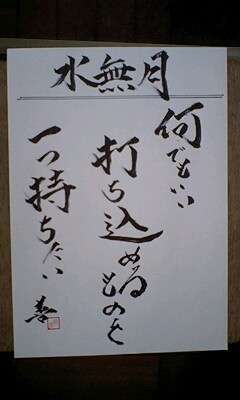 水無月
何でもいい
打ち込めるものを
一つ持ちたい